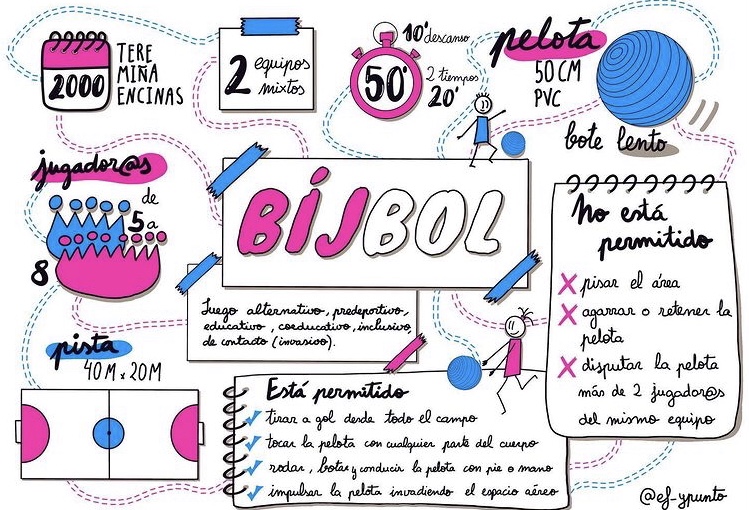 2000
TERE
MIÑA
ENCINAS
2 equipos
mixtos
50'
10' descanso
2 tiempos
20'
pelota
50 CM
PVC
bote lento
jugador@s
de
5 a
8
BÍJBOL
Juego alternativo, predeportivo,
educativo, coeducativo, inclusivo,
de contacto (invasivo).
pista
40 M x 20 M
Está permitido
tirar a gol desde todo el campo
tocar la pelota con cualquier parte del cuerpo
rodar, botar y conducir la pelota con pie o mano
impulsar la pelota invadiendo el espacio aéreo
No está
permitido
pisar el área
agarrar o retener la
pelota
disputar la pelota
más de 2 jugador@s
del mismo equipo
@ef-ypunto